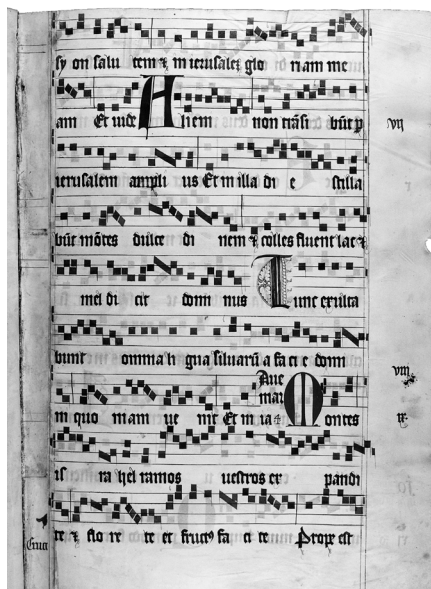 sy on salu tem & in ierusalez glo riam me
am Et iude Aliem non trāsi būt p vij
ierusalem ampli us Et in illa di e stilla
būt mōtes dulce di nem & colles fluent lac &
mel di cit domi nus Tunc exulta
bunt omnia li gna siluarū a fa ci e domi
Aue viij
ni quo niam ue nit Et in ia & mar Montes ix
is ra hel ramos uestros ex pandi
te & flo re te et fruct⁹ fa ci te Prope est